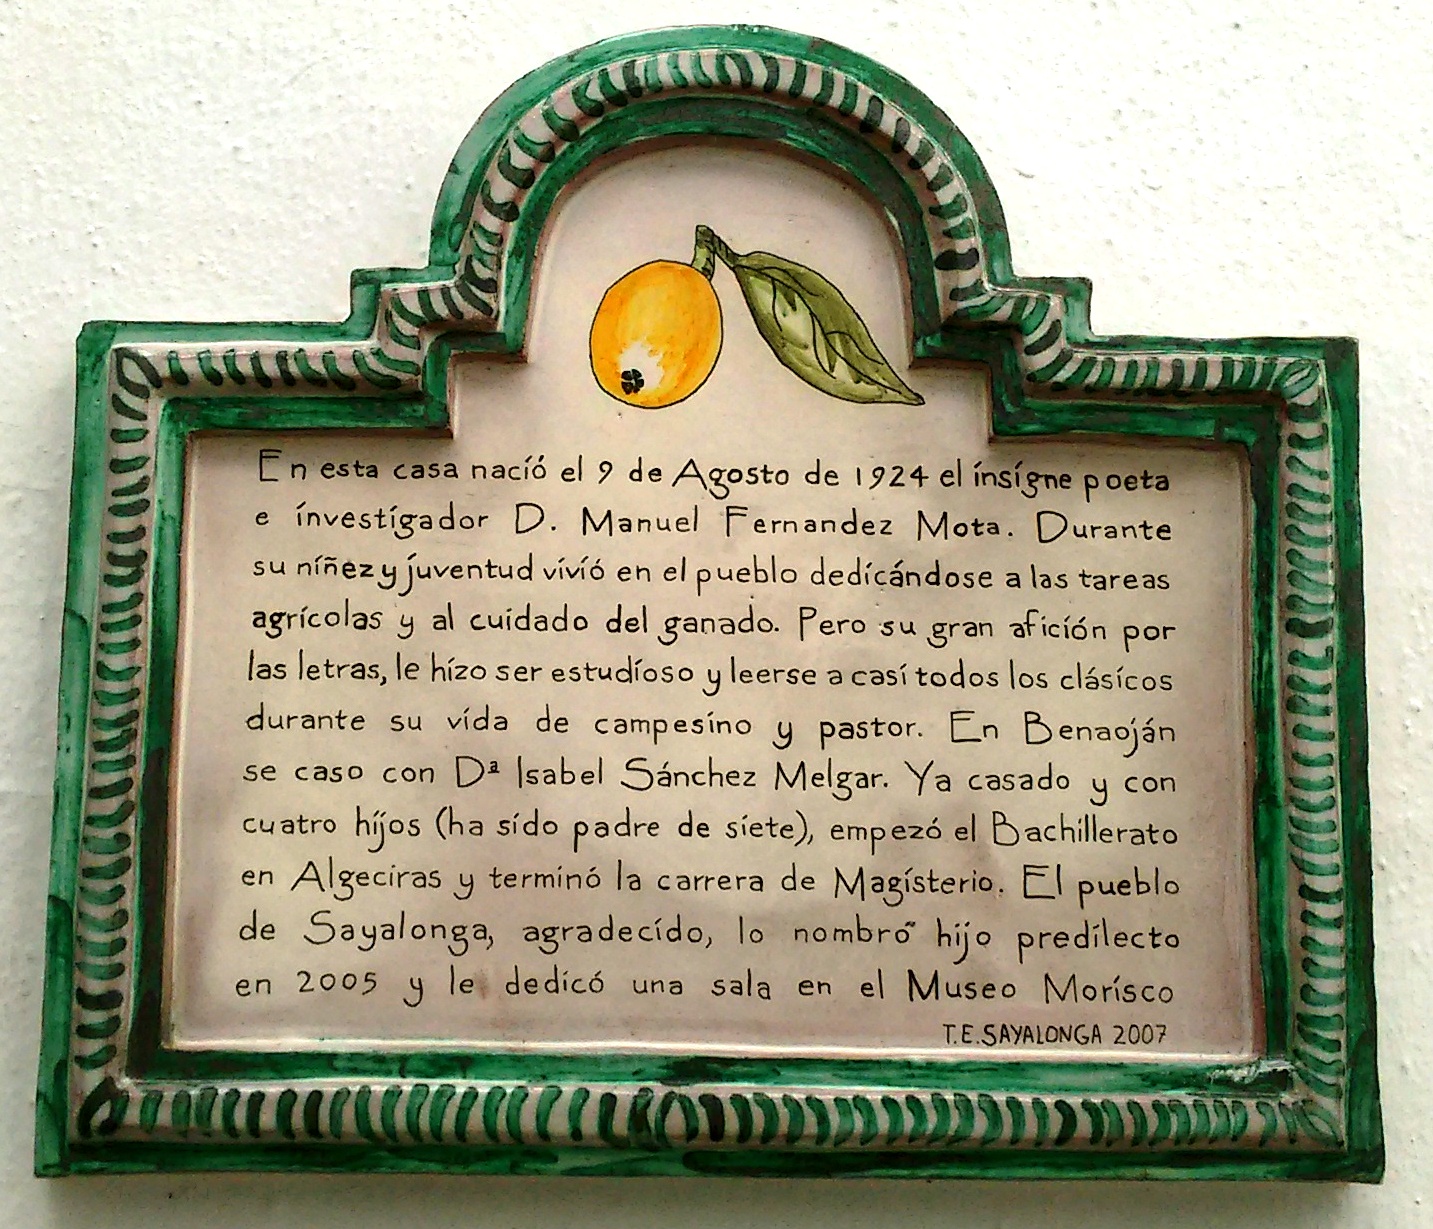 En esta casa nació el 9 de Agosto de 1924 el insigne poeta
e investigador D. Manuel Fernandez Mota. Durante
su niñez y juventud vivió en el pueblo dedicándose a las tareas
agrícolas y al cuidado del ganado. Pero su gran afición por
las letras, le hizo ser estudioso y leerse a casi todos los clásicos
durante su vida de campesino y pastor. En Benaoján
se caso con Dª Isabel Sánchez Melgar. Ya casado y con
cuatro hijos (ha sido padre de siete), empezó el Bachillerato
en Algeciras y terminó la carrera de Magisterio. El pueblo
de Sayalonga, agradecido, lo nombró hijo predilecto
en 2005 y le dedicó una sala en el Museo Morisco
T.E.SAYALONGA 2007